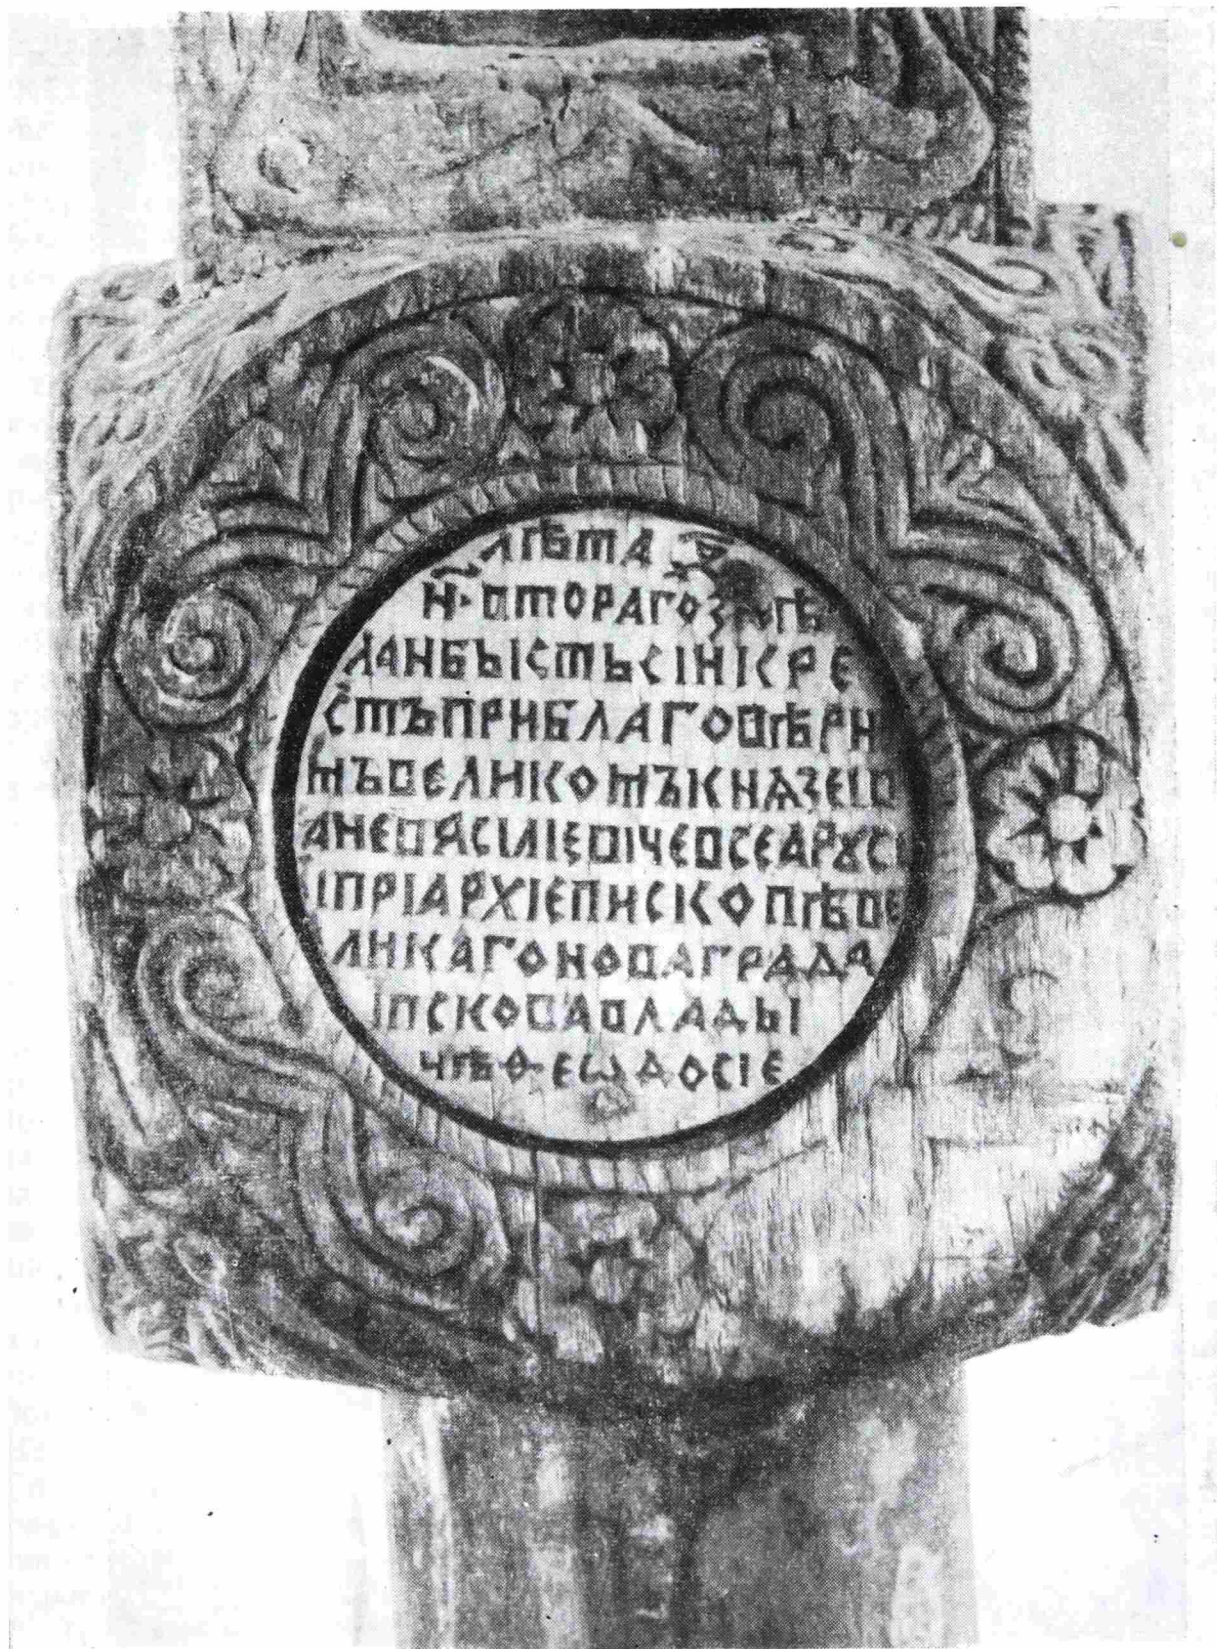 лѣта
н҃ · второго
лан бысть сін кре
стъ при благовѣрн
мъ великомъ князе ів
ане васіліевіче всеа рꙋсі
і прі архіепископѣ ве
ликаго новаграда
і пскова влады
чѣ ѳеѡдосіе